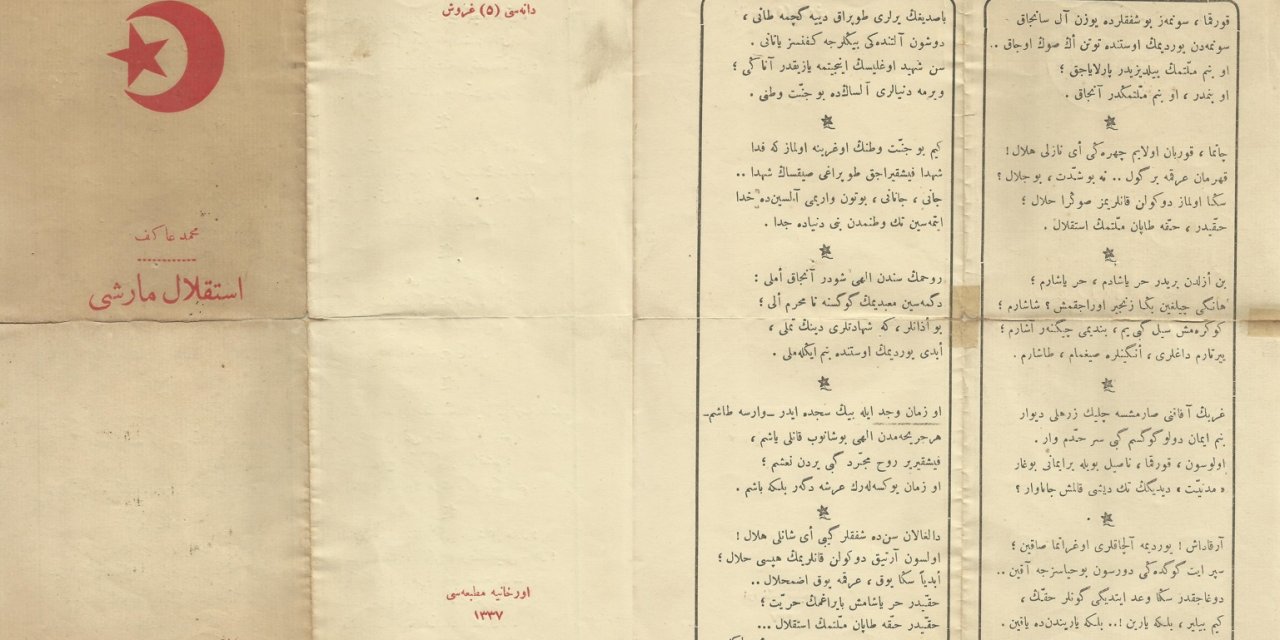 قورقما ، سونمەز بو شفقلرده یوزن آل سانجاق
سونمه‌دن یوردیمڭ اوستنده توتن أڭ صوڭ اوجاق ..
او بنم ملّتمڭ ییلدیزیدر پارلایاجق ؛
او بنمدر ، او بنم ملّتمڭدر آنجاق .
چاتما ، قوربان اولایم چهره‌ڭی أی نازلی هلال !
قهرمان عرقمه بر گول .. نه بو شدّت ، بو جلال ؟
سڭا اولماز دوکولن قانلریمز صوڭرا حلال ؛
حقّیدر ، حقّه طاپان ملّتمڭ استقلال .
بن أزلدن بریدر حر یاشادم ، حر یاشارم ؛
هانگی چیلغین بڭا زنجیر اوراجقمش ؟ شاشارم ؛
کوکره‌مش سیل گبی‌یم ، بندیمی چیگنەر آشارم ؛
ییرتارم داغلری ، أنگینلره صیغمام ، طاشارم .
غربڭ آفاقنی صارمشسه چلیك زرهلی دیوار
بنم ایمان دولو گوگسم گبی سر حدّم وار .
اولوسون ، قورقما ، ناصیل بویله بر ایمانی بوغار
« مدنیّت » دیدیگڭ تك دیشی قالمش جاناوار ؟
آرقاداش ! یوردیمه آلچاقلری اوغراتما صاقین ؛
سپر ایت گوگده‌ڭی دورسون بو حیاسزجه آقین ..
دوغاجقدر سڭا وعد ایتدیگی گونلر حقّڭ ،
کیم بیلیر ، بلکه یارین !.. بلکه یاریندن‌ده یاقین .
باصدیغڭ یرلری طوپراق دییه گچمه طانی ،
دوشون آلتنده‌کی بیڭلرجه کفنسز یاتانی .
سن شهید اوغلیسڭ اینجیتمه یازیقدر آتاڭی ؛
ویرمه دنیالری آلساڭ‌ده بو جنّت وطنی .
کیم بو جنّت وطنڭ اوغرینه اولماز که فدا
شهدا فیشقیراجق طوپراغی صیقساڭ شهدا ..
جانی ، جانانی ، بوتون واریمی آلسین‌ده خدا
ایتمه‌سین تك وطنمدن بنی دنیاده جدا .
روحمڭ سندن الهی شودر آنجاق أملی :
دگمه‌سین معبدیمڭ گوگسنه نا محرم ألی ؛
بو أذانلر ، که شهادتلری دینڭ تملی ،
أبدی یوردیمڭ اوستنده بنم ایڭله‌ملی .
او زمان وجد ایله بیڭ سجده ایدر _وارسه طاشم_
هر جریحه‌مدن الهی بوشانوب قانلی یاشم ،
فیشقیریر روح مجرّد گبی یردن نعشم ؛
او زمان یوکسه‌له‌رك عرشه دگەر بلکه باشم .
دالغالان سن‌ده شفقلر گبی أی شانلی هلال !
اولسون آرتیق دوکولن قانلریمڭ هپسی حلال ؛
أبدیاً سڭا یوق ، عرقمه یوق اضمحلال ..
حقّیدر حر یاشامش بایراغمڭ حریّت ؛
حقّیدر حقّه طاپان ملّتمڭ استقلال ...
دانه‌سی (۵) غروش
اورخانیه مطبعه‌سی
۱۳۳۷
محمد عاکف
استقلال مارشی